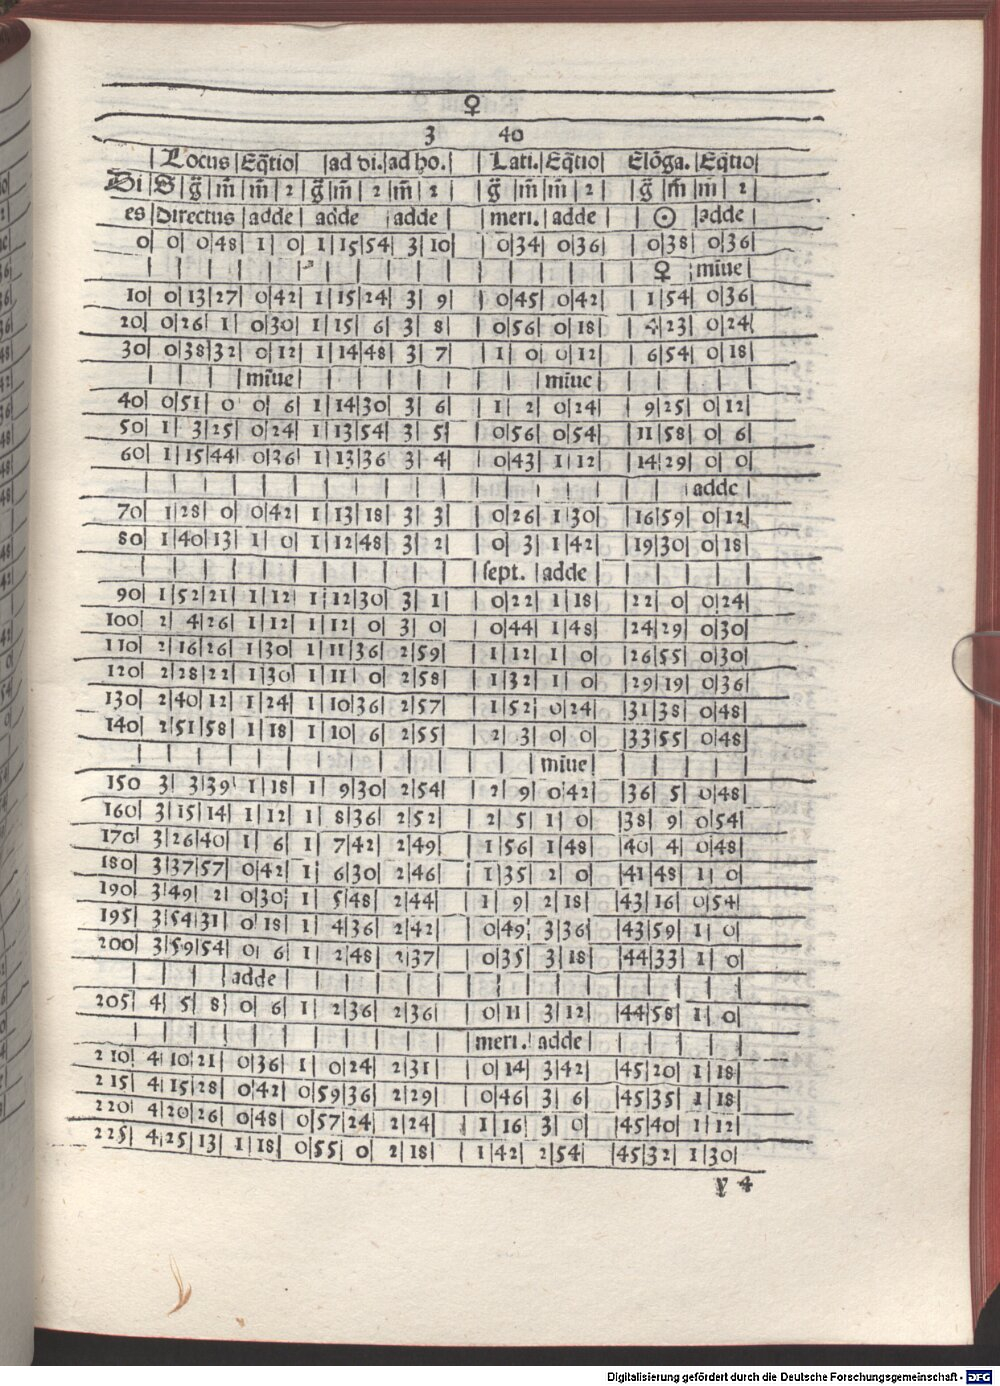 ♀
3 40
| Locus | Eq̃tio | | ad di. | ad ho. | | Lati. | Eq̃tio | Elõga. | Eq̃tio |
Di | S | g̃ | m̃ | m̃ | 2 | g̃ | m̃ | 2 | m̃ | 2 | | g̃ | m̃ | m̃ | 2 | | g̃ | m̃ | m | 2
es | directus | adde | adde | adde | | meri. | adde | | ☉ | adde |
0 | 0 | 0 | 48 | 1 | 0 | 1 | 15 | 54 | 3 | 10 | | 0 | 34 | 0 | 36 | | 0 | 38 | 0 | 36 |
♀ | miñe |
10 | 0 | 13 | 27 | 0 | 42 | 1 | 15 | 24 | 3 | 9 | | 0 | 45 | 0 | 42 | | 1 | 54 | 0 | 36 |
20 | 0 | 26 | 1 | 0 | 30 | 1 | 15 | 6 | 3 | 8 | | 0 | 56 | 0 | 18 | | 4 | 23 | 0 | 24 |
30 | 0 | 38 | 32 | 0 | 12 | 1 | 14 | 48 | 3 | 7 | | 1 | 0 | 0 | 12 | | 6 | 54 | 0 | 18 |
| miñe | | miñe |
40 | 0 | 51 | 0 | 0 | 6 | 1 | 14 | 30 | 3 | 6 | | 1 | 2 | 0 | 24 | | 9 | 25 | 0 | 12 |
50 | 1 | 3 | 25 | 0 | 24 | 1 | 13 | 54 | 3 | 5 | | 0 | 56 | 0 | 54 | | 11 | 58 | 0 | 6 |
60 | 1 | 15 | 44 | 0 | 36 | 1 | 13 | 36 | 3 | 4 | | 0 | 43 | 1 | 12 | | 14 | 29 | 0 | 0 |
adde
70 | 1 | 28 | 0 | 0 | 42 | 1 | 13 | 18 | 3 | 3 | | 0 | 26 | 1 | 30 | | 16 | 59 | 0 | 12
80 | 1 | 40 | 13 | 1 | 0 | 1 | 12 | 48 | 3 | 2 | | 0 | 3 | 1 | 42 | | 19 | 30 | 0 | 18 |
| sept. | adde |
90 | 1 | 52 | 21 | 1 | 12 | 1 | 12 | 30 | 3 | 1 | | 0 | 22 | 1 | 18 | | 22 | 0 | 0 | 24 |
100 | 2 | 4 | 26 | 1 | 12 | 1 | 12 | 0 | 3 | 0 | | 0 | 44 | 1 | 48 | | 24 | 29 | 0 | 30 |
110 | 2 | 16 | 26 | 1 | 30 | 1 | 11 | 36 | 2 | 59 | | 1 | 12 | 1 | 0 | | 26 | 55 | 0 | 30 |
120 | 2 | 28 | 22 | 1 | 30 | 1 | 11 | 0 | 2 | 58 | | 1 | 32 | 1 | 0 | | 29 | 19 | 0 | 36 |
130 | 2 | 40 | 12 | 1 | 24 | 1 | 10 | 36 | 2 | 57 | | 1 | 52 | 0 | 24 | | 31 | 38 | 0 | 48 |
140 | 2 | 51 | 58 | 1 | 18 | 1 | 10 | 6 | 2 | 55 | | 2 | 3 | 0 | 0 | | 33 | 55 | 0 | 48 |
| miñe |
150 | 3 | 3 | 39 | 1 | 18 | 1 | 9 | 30 | 2 | 54 | | 2 | 9 | 0 | 42 | | 36 | 5 | 0 | 48 |
160 | 3 | 15 | 14 | 1 | 12 | 1 | 8 | 36 | 2 | 52 | | 2 | 5 | 1 | 0 | | 38 | 9 | 0 | 54 |
170 | 3 | 26 | 40 | 1 | 6 | 1 | 7 | 42 | 2 | 49 | | 1 | 56 | 1 | 48 | | 40 | 4 | 0 | 48 |
180 | 3 | 37 | 57 | 0 | 42 | 1 | 6 | 30 | 2 | 46 | | 1 | 35 | 2 | 0 | | 41 | 48 | 1 | 0 |
190 | 3 | 49 | 2 | 0 | 30 | 1 | 5 | 48 | 2 | 44 | | 1 | 9 | 2 | 18 | | 43 | 16 | 0 | 54 |
195 | 3 | 54 | 31 | 0 | 18 | 1 | 4 | 36 | 2 | 42 | | 0 | 49 | 3 | 36 | | 43 | 59 | 1 | 0 |
200 | 3 | 59 | 54 | 0 | 6 | 1 | 2 | 48 | 2 | 37 | | 0 | 35 | 3 | 18 | | 44 | 33 | 1 | 0 |
| adde |
205 | 4 | 5 | 8 | 0 | 6 | 1 | 2 | 36 | 2 | 36 | | 0 | 11 | 3 | 12 | | 44 | 58 | 1 | 0 |
| meri. | adde |
210 | 4 | 10 | 21 | 0 | 36 | 1 | 0 | 24 | 2 | 31 | | 0 | 14 | 3 | 42 | | 45 | 20 | 1 | 18 |
215 | 4 | 15 | 28 | 0 | 42 | 0 | 59 | 36 | 2 | 29 | | 0 | 46 | 3 | 6 | | 45 | 35 | 1 | 18 |
220 | 4 | 20 | 26 | 0 | 48 | 0 | 57 | 24 | 2 | 24 | | 1 | 16 | 3 | 0 | | 45 | 40 | 1 | 12 |
225 | 4 | 25 | 13 | 1 | 18 | 0 | 55 | 0 | 2 | 18 | | 1 | 42 | 2 | 54 | | 45 | 32 | 1 | 30 |
y 4
Digitalisierung gefördert durch die Deutsche Forschungsgemeinschaft - DFG